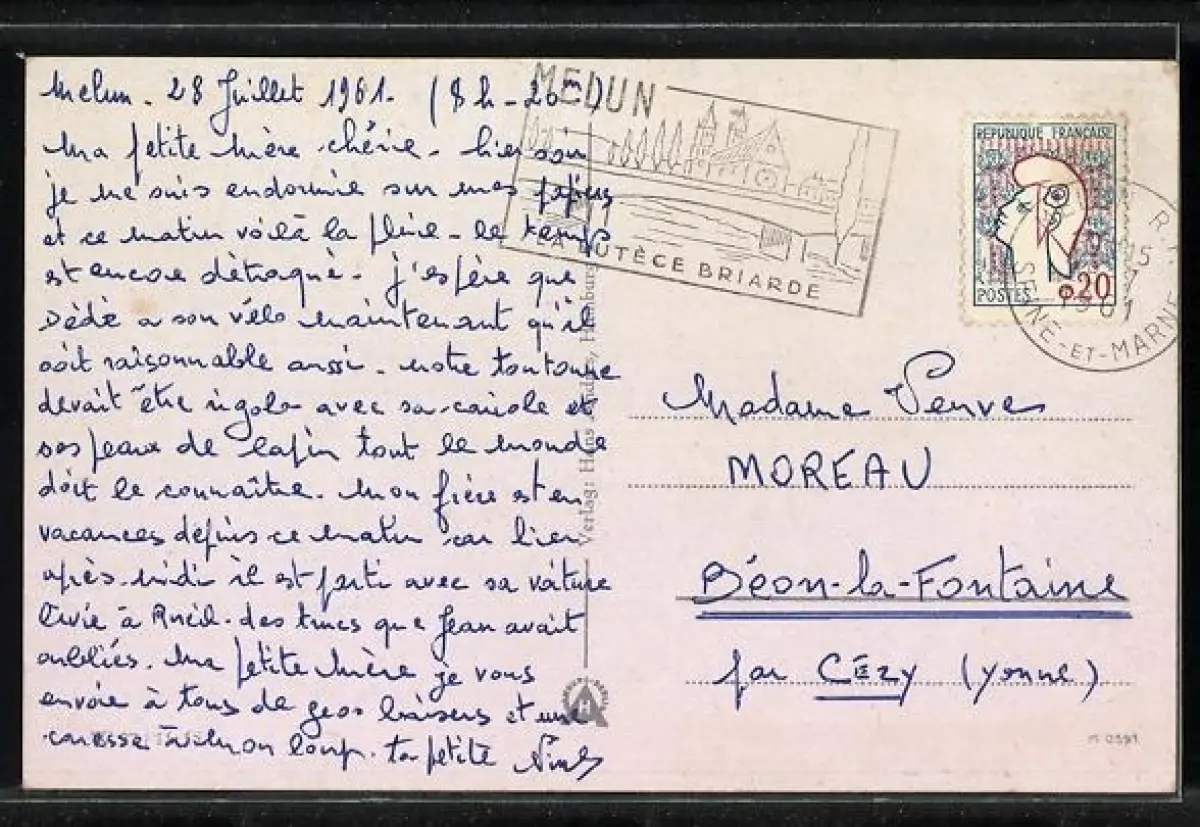 Melun. 28 Juillet 1961. (8h-20m)
Ma petite Mère chérie. hier soir
je me suis endormie sur mes papiers
et ce matin voilà la pluie. le temps
est encore détraqué. J'espère que
Dédé a son vélo maintenant qu'il
soit raisonnable aussi. notre tontonne
devait être rigolo avec sa cariole et
ses peaux de lapin tout le monde
doit le connaître. Mon frère est en
vacances depuis ce matin car hier
après-midi il est parti avec sa voiture
à Rueil. des trucs que Jean avait
oubliés. Ma petite Mère je vous
envoie à tous de gros baisers et une
caresse à mon loup. ta petite
MELUN
LA LUTÈCE BRIARDE
REPUBLIQUE FRANÇAISE
POSTES 0,20
R.P.
15
1961
SEINE-ET-MARNE
Madame Veuve
MOREAU
Béon-la-Fontaine
par CÉZY (Yonne)
Verlag: Hans
H
0591